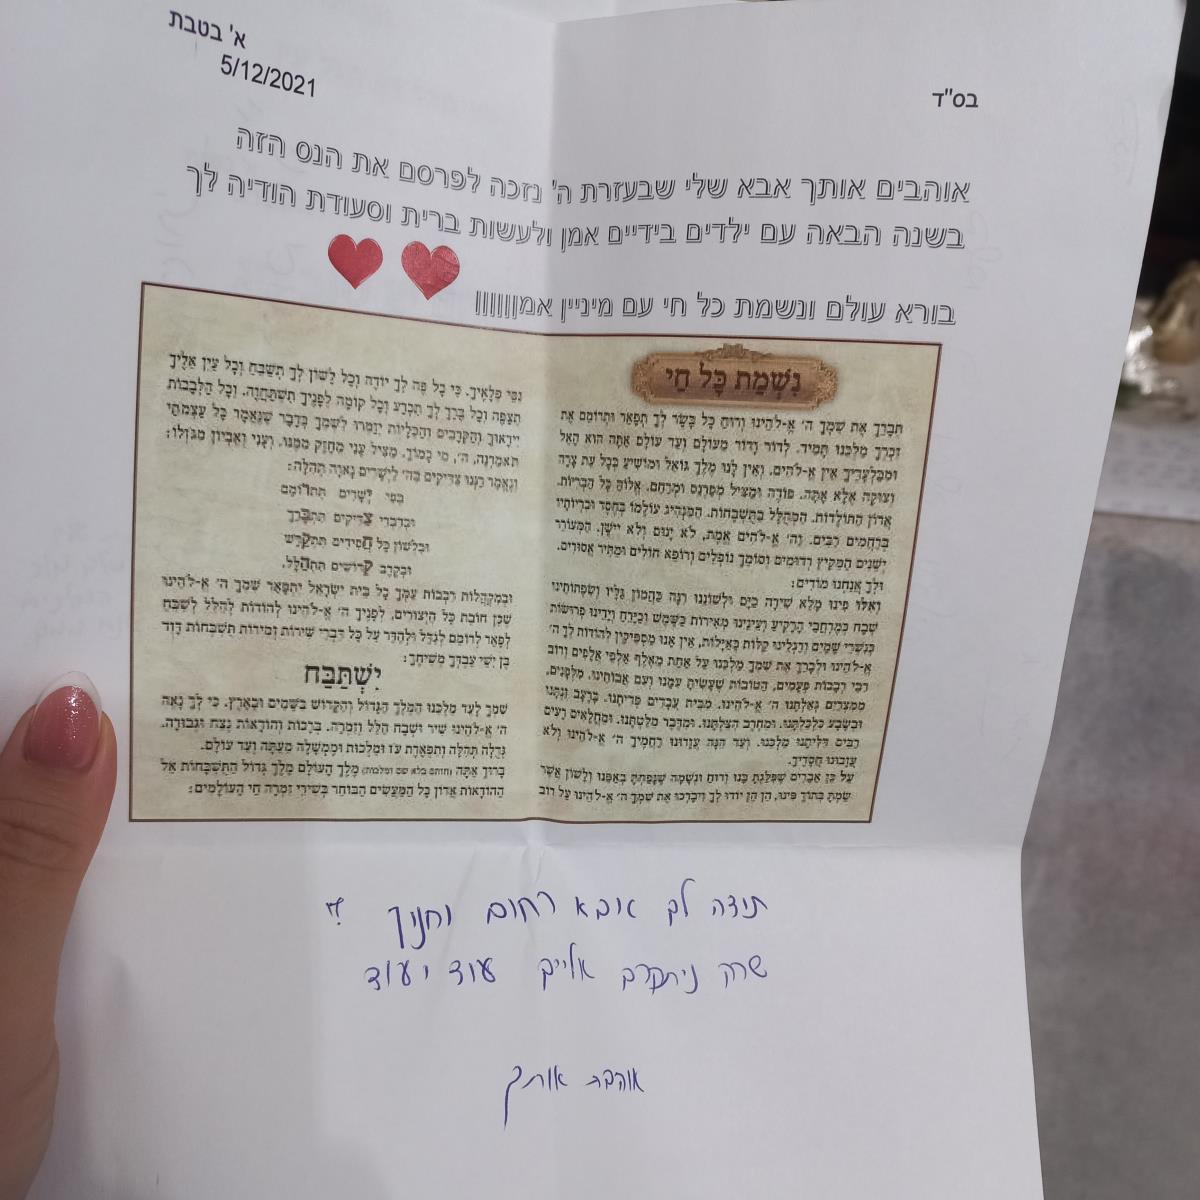 בס"ד
א' בטבת
5/12/2021
אוהבים אותך אבא שלי שבעזרת ה' נזכה לפרסם את הנס הזה
בשנה הבאה עם ילדים בידיים אמן ולעשות ברית וסעודת הודיה לך
בורא עולם ונשמת כל חי עם מיניין אמןןןןןןן
נִשְׁמַת כָּל חַי
תְּבָרֵךְ אֶת שִׁמְךָ ה' אֱ-לֹהֵינוּ וְרוּחַ כָּל בָּשָׂר לְךָ תְּפָאֵר וּתְרוֹמֵם אֶת
זִכְרְךָ מַלְכֵּנוּ תָּמִיד. לְדוֹר וָדוֹר מֵעוֹלָם וְעַד עוֹלָם אַתָּה הוּא הָאֵל
וּמִבַּלְעָדֶיךָ אֵין אֱ-לֹהִים. וְאֵין לָנוּ מֶלֶךְ גּוֹאֵל וּמוֹשִׁיעַ בְּכָל עֵת צָרָה
וְצוּקָה אֶלָּא אָתָּה. פּוֹדֶה וּמַצִּיל מְפַרְנֵס וּמְרַחֵם. אֱלוֹהַּ כָּל הַבְּרִיּוֹת.
אֲדוֹן הַתּוֹלָדוֹת. הַמְהֻלָּל בַּתִּשְׁבָּחוֹת. הַמַּנְהִיג עוֹלָמוֹ בְּחֶסֶד וּבְרִיּוֹתָיו
בְּרַחֲמִים רַבִּים. וַה' אֱ-לֹהִים אֱמֶת, לֹא יָנוּם וְלֹא יִישָׁן. הַמְעוֹרֵר
יְשֵׁנִים הַמֵּקִיץ רְדוּמִים וְסוֹמֵךְ נוֹפְלִים וְרוֹפֵא חוֹלִים וּמַתִּיר אֲסוּרִים.
וּלְךָ אֲנַחְנוּ מוֹדִים:
וְאִלּוּ פִינוּ מָלֵא שִׁירָה כַיָּם וּלְשׁוֹנֵנוּ רִנָּה כַּהֲמוֹן גַּלָּיו וְשִׂפְתוֹתֵינוּ
שֶׁבַח כְּמֶרְחֲבֵי הָרָקִיעַ וְעֵינֵינוּ מְאִירוֹת כַּשֶּׁמֶשׁ וְכַיָּרֵחַ וְיָדֵינוּ פְרוּשׂוֹת
כְּנִשְׁרֵי שָׁמַיִם וְרַגְלֵינוּ קַלּוֹת כָּאַיָּלוֹת, אֵין אָנוּ מַסְפִּיקִין לְהוֹדוֹת לְךָ ה'
אֱ-לֹהֵינוּ וּלְבָרֵךְ אֶת שִׁמְךָ מַלְכֵּנוּ עַל אַחַת מֵאֶלֶף אַלְפֵי אֲלָפִים וְרוֹב
רִבֵּי רְבָבוֹת פְּעָמִים, הַטּוֹבוֹת שֶׁעָשִׂיתָ עִמָּנוּ וְעִם אֲבוֹתֵינוּ. מִלְּפָנִים,
מִמִּצְרַיִם גְּאַלְתָּנוּ ה' אֱ-לֹהֵינוּ. מִבֵּית עֲבָדִים פְּדִיתָנוּ. בְּרָעָב זַנְתָּנוּ
וּבְשָׂבָע כִּלְכַּלְתָּנוּ. וּמֵחֶרֶב הִצַּלְתָּנוּ. וּמִדֶּבֶר מִלַּטְתָּנוּ. וּמֵחֳלָאִים רָעִים
רַבִּים דִּלִּיתָנוּ מַלְכֵּנוּ. וְעַד הֵנָּה עֲזָרוּנוּ רַחֲמֶיךָ ה' אֱ-לֹהֵינוּ וְלֹא
עֲזָבוּנוּ חֲסָדֶיךָ.
עַל כֵּן אֵבָרִים שֶׁפִּלַּגְתָּ בָּנוּ וְרוּחַ וּנְשָׁמָה שֶׁנָּפַחְתָּ בְאַפֵּנוּ וְלָשׁוֹן אֲשֶׁר
שַׂמְתָּ בְּתוֹךְ פִּינוּ, הֵן הֵן יוֹדוּ לְךָ וִיבָרְכוּ אֶת שִׁמְךָ ה' אֱ-לֹהֵינוּ עַל רוֹב
נִסֵּי פְלָאֶיךָ. כִּי כָל פֶּה לְךָ יוֹדֶה וְכָל לָשׁוֹן לְךָ תְשַׁבֵּחַ וְכָל עַיִן אֵלֶיךָ
תְצַפֶּה וְכָל בֶּרֶךְ לְךָ תִכְרַע וְכָל קוֹמָה לְפָנֶיךָ תִשְׁתַּחֲוֶה. וְכָל הַלְּבָבוֹת
יִירָאוּךָ וְהַקֶּרֶב וְהַכְּלָיוֹת יְזַמְּרוּ לִשְׁמֶךָ כַּדָּבָר שֶׁנֶּאֱמַר כָּל עַצְמֹתַי
תֹּאמַרְנָה, ה', מִי כָמוֹךָ. מַצִּיל עָנִי מֵחָזָק מִמֶּנּוּ. וְעָנִי וְאֶבְיוֹן מִגֹּזְלוֹ:
וְנֶאֱמַר רַנְּנוּ צַדִּיקִים בַּה' לַיְשָׁרִים נָאוָה תְהִלָּה:
בְּפִי יְשָׁרִים תִּתְרוֹמָם
וּבְדִבְרֵי צַדִּיקִים תִּתְבָּרַךְ
וּבִלְשׁוֹן כָּל חֲסִידִים תִּתְקַדָּשׁ
וּבְקֶרֶב קְדוֹשִׁים תִּתְהַלָּל.
וּבְמִקְהֲלוֹת רִבְבוֹת עַמְּךָ כָּל בֵּית יִשְׂרָאֵל יִתְפָּאַר שִׁמְךָ ה' אֱ-לֹהֵינוּ
שֶׁכֵּן חוֹבַת כָּל הַיְצוּרִים, לְפָנֶיךָ ה' אֱ-לֹהֵינוּ לְהוֹדוֹת לְהַלֵּל לְשַׁבֵּחַ
לְפָאֵר לְרוֹמֵם לְגַדֵּל וּלְהַדֵּר עַל כָּל דִּבְרֵי שִׁירוֹת וְזִמְרוֹת תִּשְׁבְּחוֹת דָּוִד
בֶּן יִשַׁי עַבְדְּךָ מְשִׁיחֶךָ:
יִשְׁתַּבַּח
שִׁמְךָ לָעַד מַלְכֵּנוּ הַמֶּלֶךְ הַגָּדוֹל וְהַקָּדוֹשׁ בַּשָּׁמַיִם וּבָאָרֶץ. כִּי לְךָ נָאֶה
ה' אֱ-לֹהֵינוּ שִׁיר וּשְׁבָח הַלֵּל וְזִמְרָה. בְּרָכוֹת וְהוֹדָאוֹת נֶצַח וּגְבוּרָה.
גְּדֻלָּה תְּהִלָּה וְתִפְאֶרֶת עֹז וּמַלְכוּת וּמֶמְשָׁלָה מֵעַתָּה וְעַד עוֹלָם.
בָּרוּךְ אַתָּה (חותם בלא שם ומלכות) מֶלֶךְ הָעוֹלָם מֶלֶךְ גָּדוֹל הַתִּשְׁבָּחוֹת אֵל
הַהוֹדָאוֹת אֲדוֹן כָּל הַמַּעֲשִׂים הַבּוֹחֵר בְּשִׁירֵי זִמְרָה חֵי הָעוֹלָמִים:
תודה לך אבא רחום וחנון
שרק ניתקרב אלייך עוד ועוד
אוהבת אותך